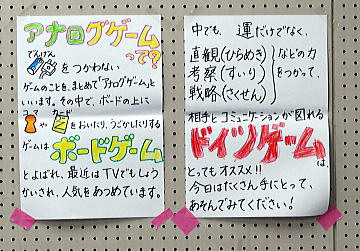 アナログゲーム
って?
でんげん
をつかわない
ゲームのことを、まとめて「アナログゲーム」と
いいます。その中で、ボードの上に
コマ カード
や をおいたり、うごかしたりする
ゲームは ボードゲーム
とよばれ、最近はTVでもしょう
かいされ、人気をあつめています。
中でも、運だけでなく、
直観(ひらめき)
考察(すいり)
戦略(さくせん)
などの力
をつかって、
相手とコミュニケーションが図れる
ドイツゲームは、
とってもオススメ!!
今日はたくさん手にとって、
あそんでみてください!